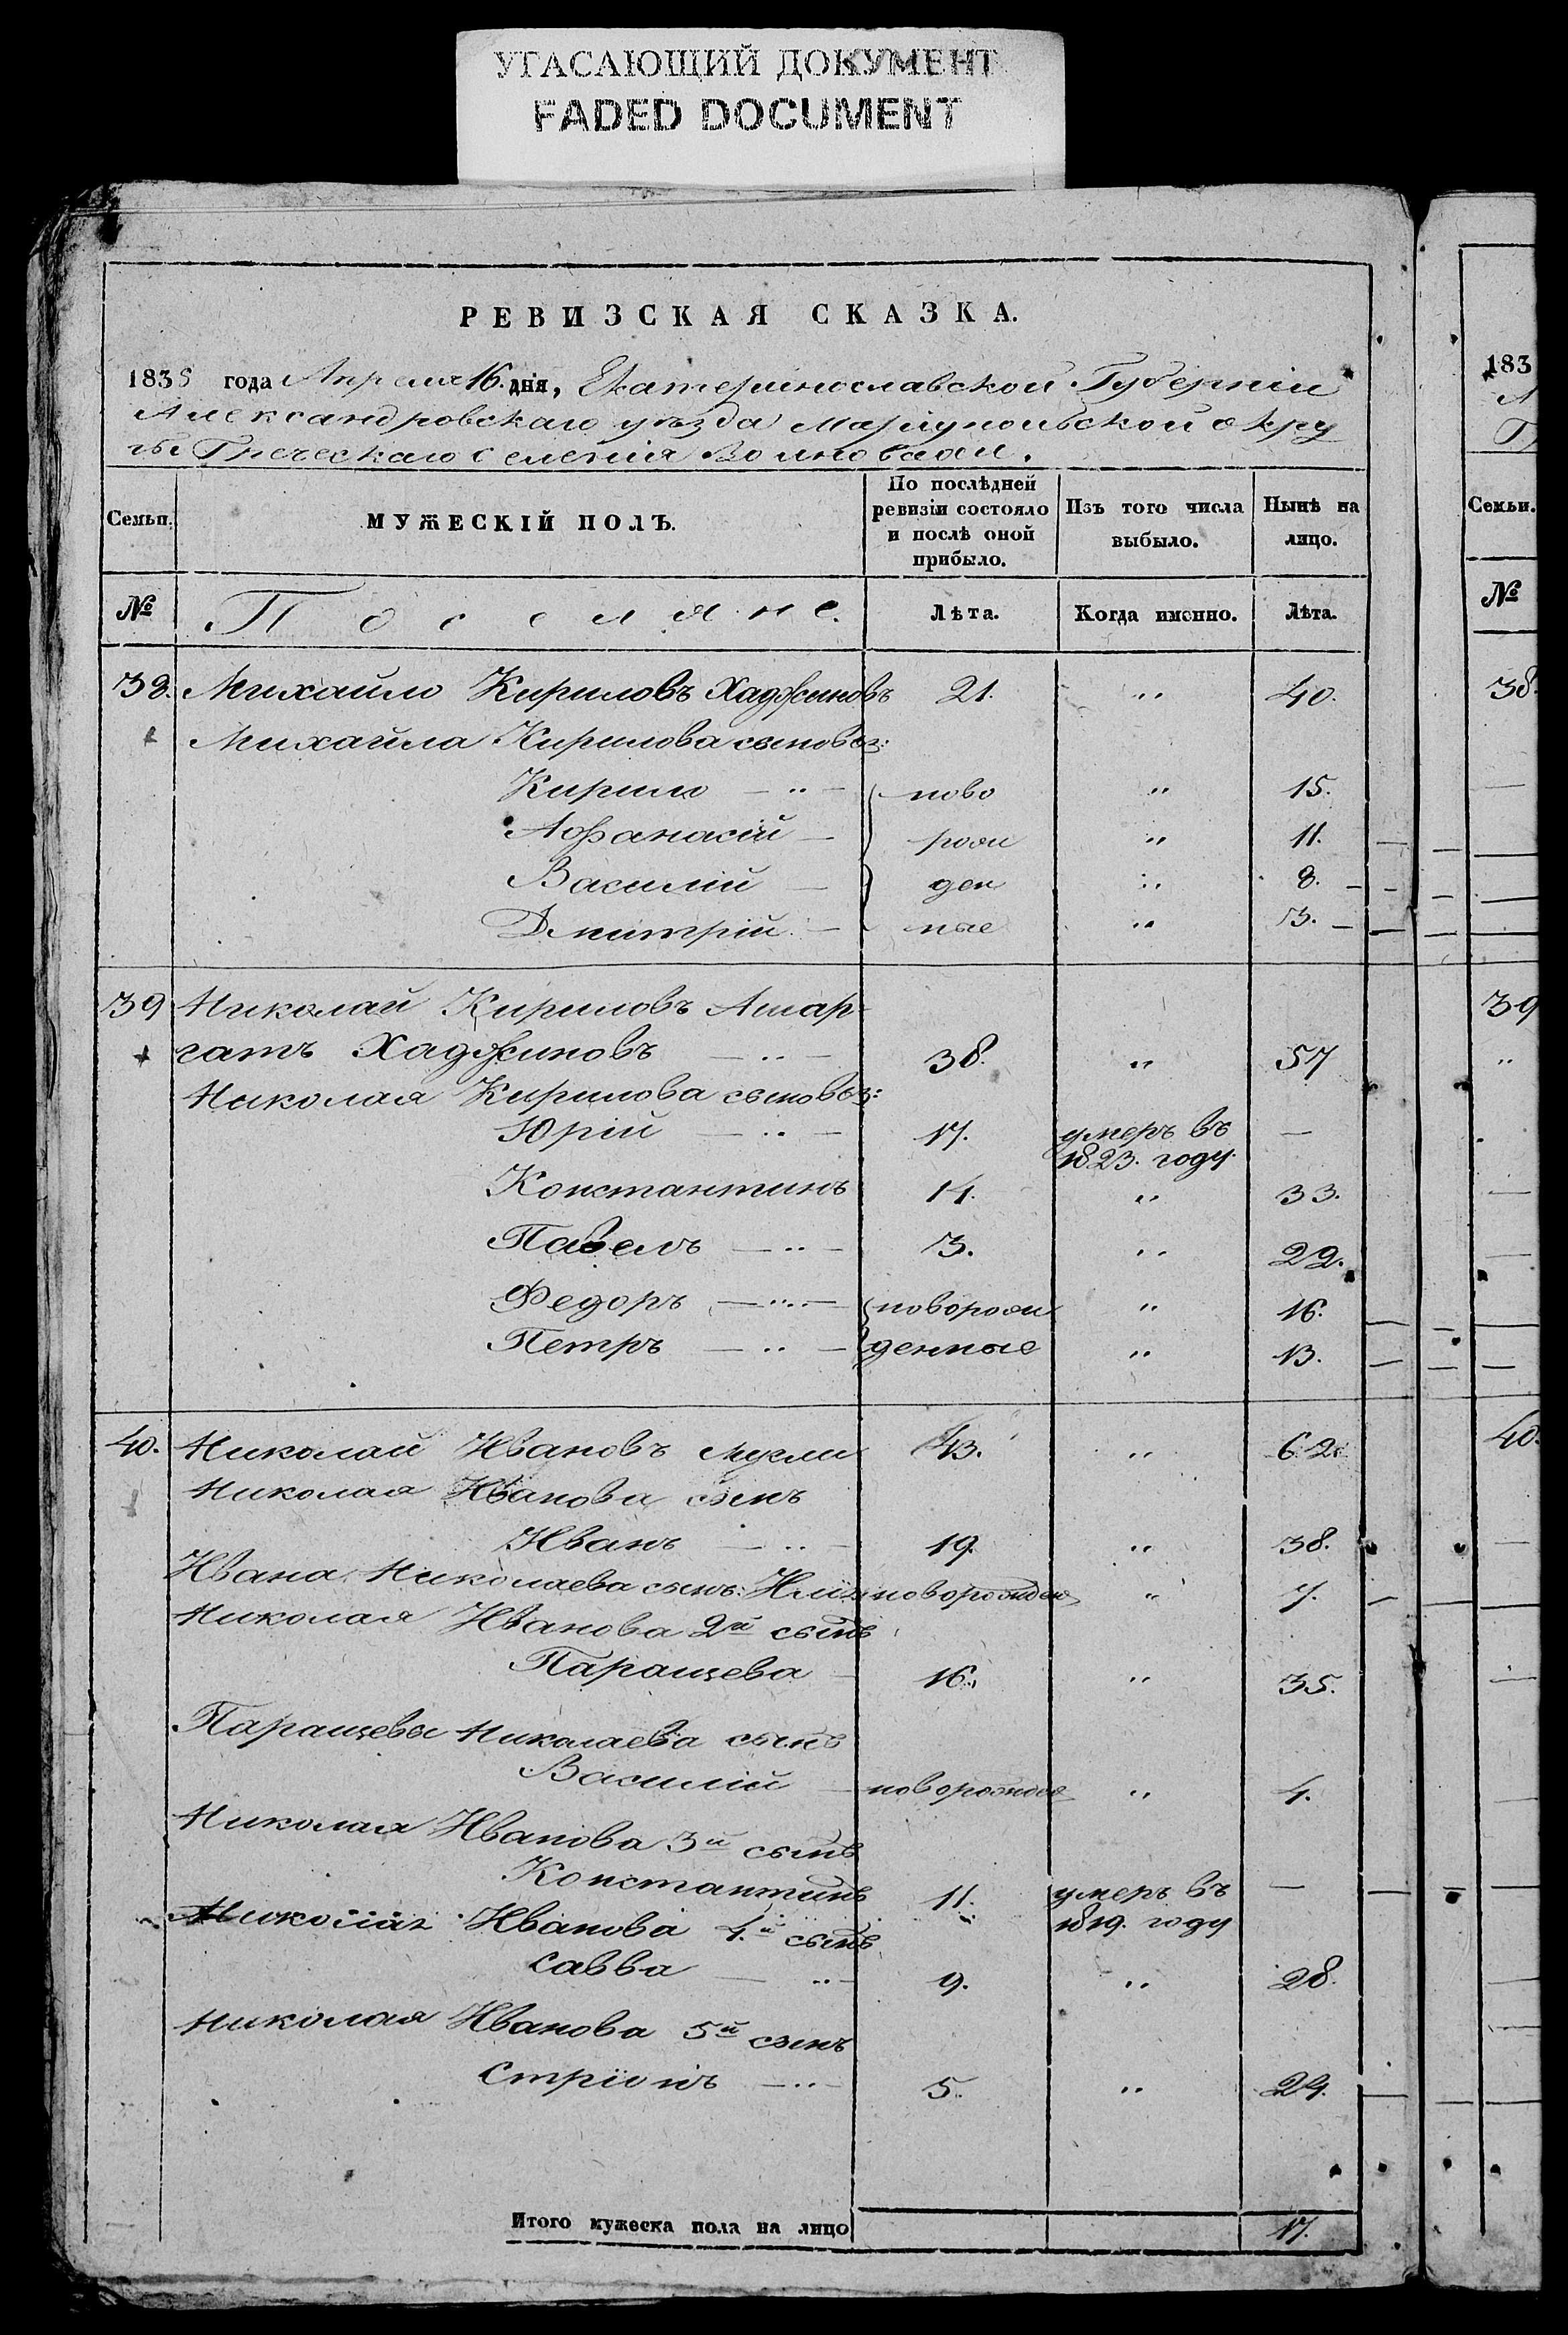 УГАСАЮЩИЙ ДОКУМЕНТ
FADED DOCUMENT
РЕВИЗСКАЯ СКАЗКА.
1835 года Апреля 16. дня, Екатеринославской Губерніи
Александровскаго уѣзда Маріупольской окру
ги Греческаго селенія
Семьи.
МУЖЕСКІЙ ПОЛЪ.
По послѣдней ревизіи состояло и послѣ оной прибыло.
Изъ того числа выбыло.
Нынѣ на лицо.
№ Поселяне. Лѣта. Когда именно. Лѣта.
38. Михайло Кириловъ Хаджиновъ 21. " 40.
Михайла Кирилова сыновья:
Кирило — " — ново " 15.
Афанасій — рож " 11.
Василій — ден " 8.
Дмитрій — ные " 3.
39 Николай Кириловъ
Хаджиновъ — " — 38. " 57
Николая Кирилова сыновья:
Юрій — " — 17. умеръ въ —
1823. году.
Константинъ 14. " 33.
Павелъ — " — 3. " 22.
Федоръ — " — новорож " 16.
Петръ — " — денные " 13.
40. Николай Ивановъ 43. " 62.
Николая Иванова сынъ
Иванъ — " — 19. " 38.
Ивана Николаева сынъ: Илія новорожден " 7.
Николая Иванова 2й сынъ
Паращева — 16. " 35.
Паращевы Николаева сынъ
Василій — новорожден " 4.
Николая Иванова 3й сынъ
Константинъ 11. умеръ въ —
Николая Иванова 4.й сынъ 1819. году
Савва — " — 9. " 28.
Николая Иванова 5й сынъ
— " — 5. " 24.
Итого мужеска пола на лицо 17.
183
Семьи.
№
38.
39
40.